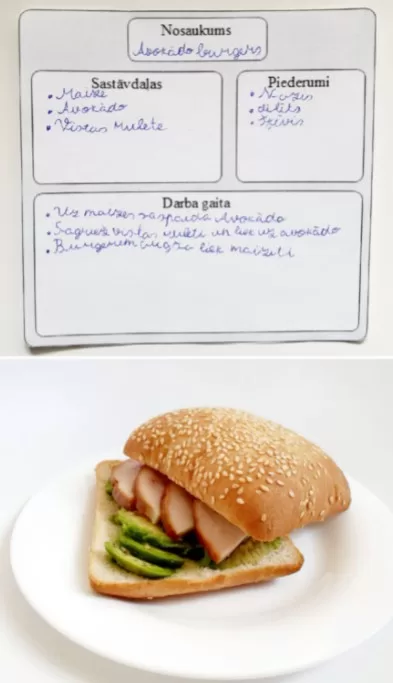 Nosaukums
Avokādo burgers
Sastāvdaļas
• Maize
• Avokādo
• Vistas mulete
Piederumi
• Nazis
• šķīvis
Darba gaita
• Uz maizes saspaida Avokādo
• Sagriež vistas muleti un liek uz avokādo
• Burgerim augšā liek maizīti